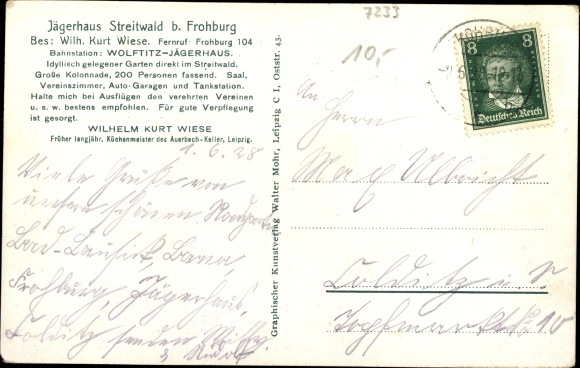 Jägerhaus Streitwald b. Frohburg
Bes: Wilh. Kurt Wiese. Fernruf: Frohburg 104
Bahnstation: WOLFTITZ-JÄGERHAUS.
Idyllisch gelegener Garten direkt im Streitwald.
Große Kolonnade, 200 Personen fassend. Saal,
Vereinszimmer, Auto-Garagen und Tankstation.
Halte mich bei Ausflügen den verehrten Vereinen
u. s. w. bestens empfohlen. Für gute Verpflegung
ist gesorgt.
WILHELM KURT WIESE
Früher langjähr. Küchenmeister des Auerbach-Keller, Leipzig.
1. 6. 28
Viele Grüße von
unserer schönen
Bad-Lausick, Borna,
Frohburg, Jägerhaus,
Colditz senden Willy
& Rudolf
Graphischer Kunstverlag Walter Mohr, Leipzig C I, Oststr. 43.
7233
10,-
8 8
Deutsches Reich
An Herrn
Max Ulbricht
Colditz i. S.
Topfmarkt 10